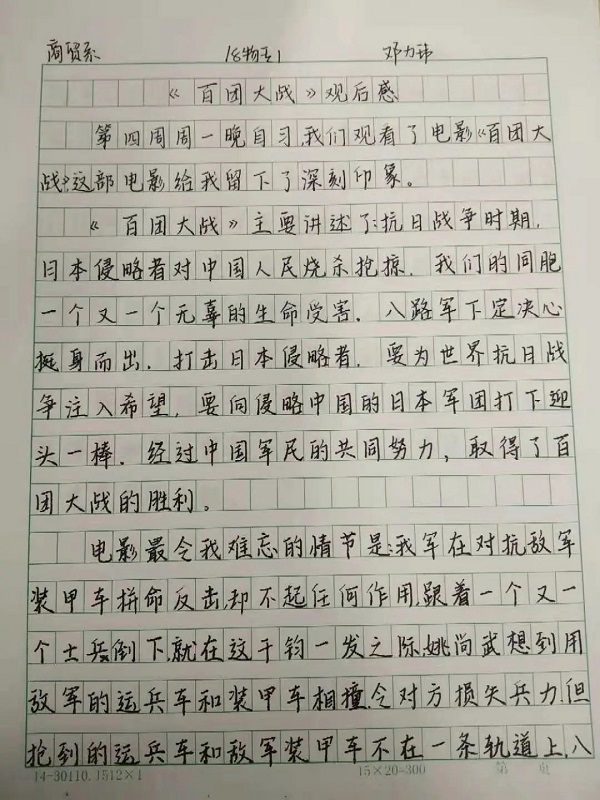 商贸系 18物专1 邓力玮
《百团大战》观后感
第四周周一晚自习,我们观看了电影《百团大
战》,这部电影给我留下了深刻印象。
《百团大战》主要讲述了:抗日战争时期,
日本侵略者对中国人民烧杀抢掠.我们的同胞
一个又一个无辜的生命受害.八路军下定决心
挺身而出.打击日本侵略者.要为世界抗日战
争注入希望,要向侵略中国的日本军团打下迎
头一棒.经过中国军民的共同努力,取得了百
团大战的胜利。
电影最令我难忘的情节是:我军在对抗敌军
装甲车拼命反击,却不起任何作用,跟着一个又一
个士兵倒下,就在这千钧一发之际,姚尚武想到用
敌军的运兵车和装甲车相撞,令对方损失兵力,但
抢到的运兵车和敌军装甲车不在一条轨道上,八
14-30110.1512×1 15×20=300 第 页